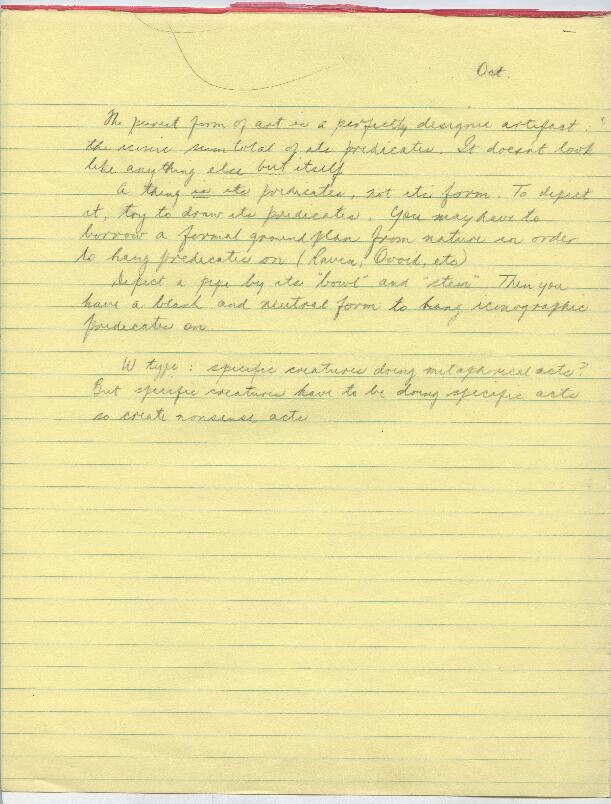 Oct.
The purest form of art is a perfectly designed artifact:
the iconic sum total of its predicates. It doesnt look
like anything else but itself
A thing is its predicates, not its form. To depict
it, try to draw its predicates. You may have to
borrow a formal ground plan from nature in order
to hang predicates on (Raven, Ovoid, etc)
Depict a pipe by its "bowl" and "stem". Then you
have a blank and neutral form to hang iconographic
predicates on
W type: specific creatures doing metaphorical acts?
But specific creatures have to be doing specific acts
so create nonsense acts